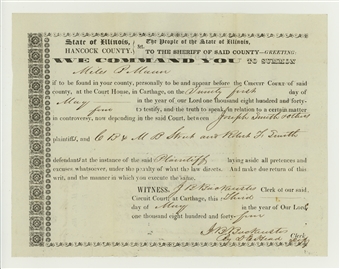 State of Illinois,
HANCOCK COUNTY; } ss.
The People of the State of Illinois,
TO THE SHERIFF OF SAID COUNTY—GREETING:
WE COMMAND YOU TO SUMMON
Miles
if to be found in your county, personally to be and appear before the CIRCUIT COURT of said
county, at the Court House, in Carthage, on the first day of
May in the year of our Lord one thousand eight hundred and forty-
five to testify, and the truth to speak, in relation to a certain matter
in controversy, now depending in the said Court, between Joseph Smith
plaintiff, and C B & M B and Robert F. Smith
defendant at the instance of the said Plaintiff laying aside all pretences and
excuses whatsoever, under the penalty of what the law directs. And make due return of this
writ, and the manner in which you execute the same.
WITNESS, J B Backenstos Clerk of our said
Circuit Court, at Carthage, this Third
day of May in the year of Our Lord
one thousand eight hundred and forty-five
J B Backenstos Clerk
By D E Head